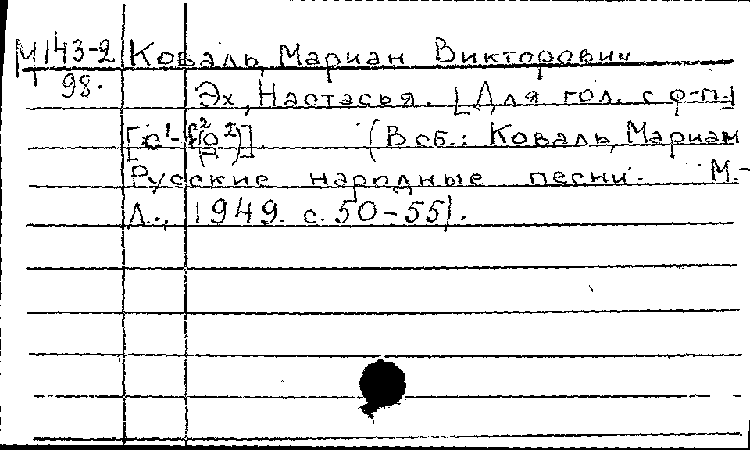 М 143-2 Коваль, Мариан Викторович
98. Эх, Настасья. [Для гол. с ф-п.]
(В сб.: Коваль, Мариан
Русские народные песни. М.-
Л., 1949. с. 50-55).